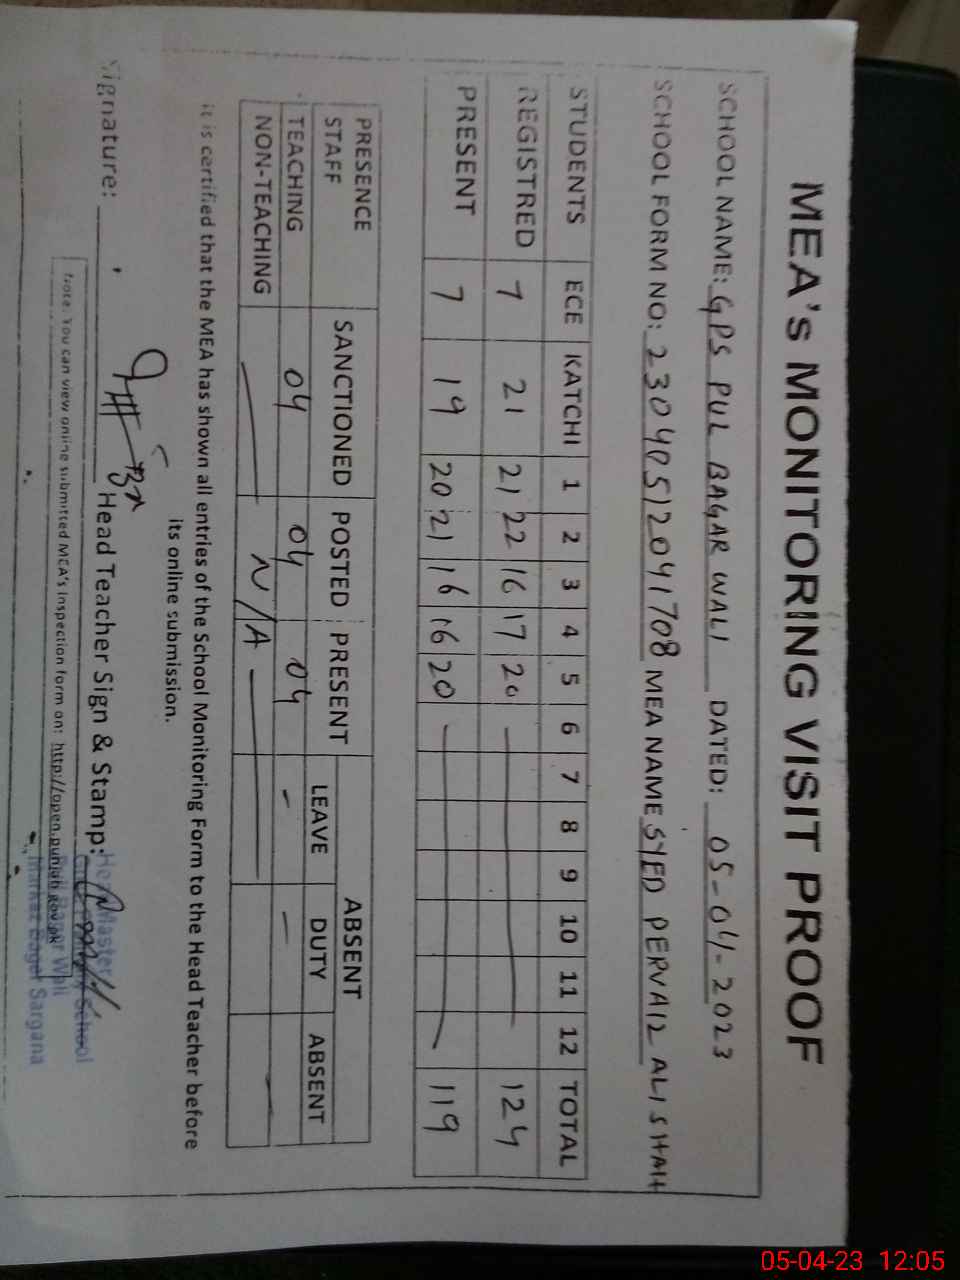 MEA's MONITORING VISIT PROOF
SCHOOL NAME: GPS PUL BAGAR WALI DATED: 05-04-2023
SCHOOL FORM NO: 23040512041708 MEA NAME SYED PERVAIZ ALI SHAH
STUDENTS ECE KATCHI 1 2 3 4 5 6 7 8 9 10 11 12 TOTAL
REGISTRED 7 21 21 22 16 17 20 124
PRESENT 7 19 20 21 16 16 20 119
PRESENCE STAFF SANCTIONED POSTED PRESENT ABSENT
LEAVE DUTY ABSENT
TEACHING 04 04 04 - -
NON-TEACHING N/A
it is certified that the MEA has shown all entries of the School Monitoring Form to the Head Teacher before
its online submission.
Signature: Head Teacher Sign & Stamp:
Note: You can view online submitted MEA's Inspection form on: http://open.punjab.gov.pk
Head Master
School
Pull Bagar Wali
Markaz Bagar Sargana
05-04-23 12:05